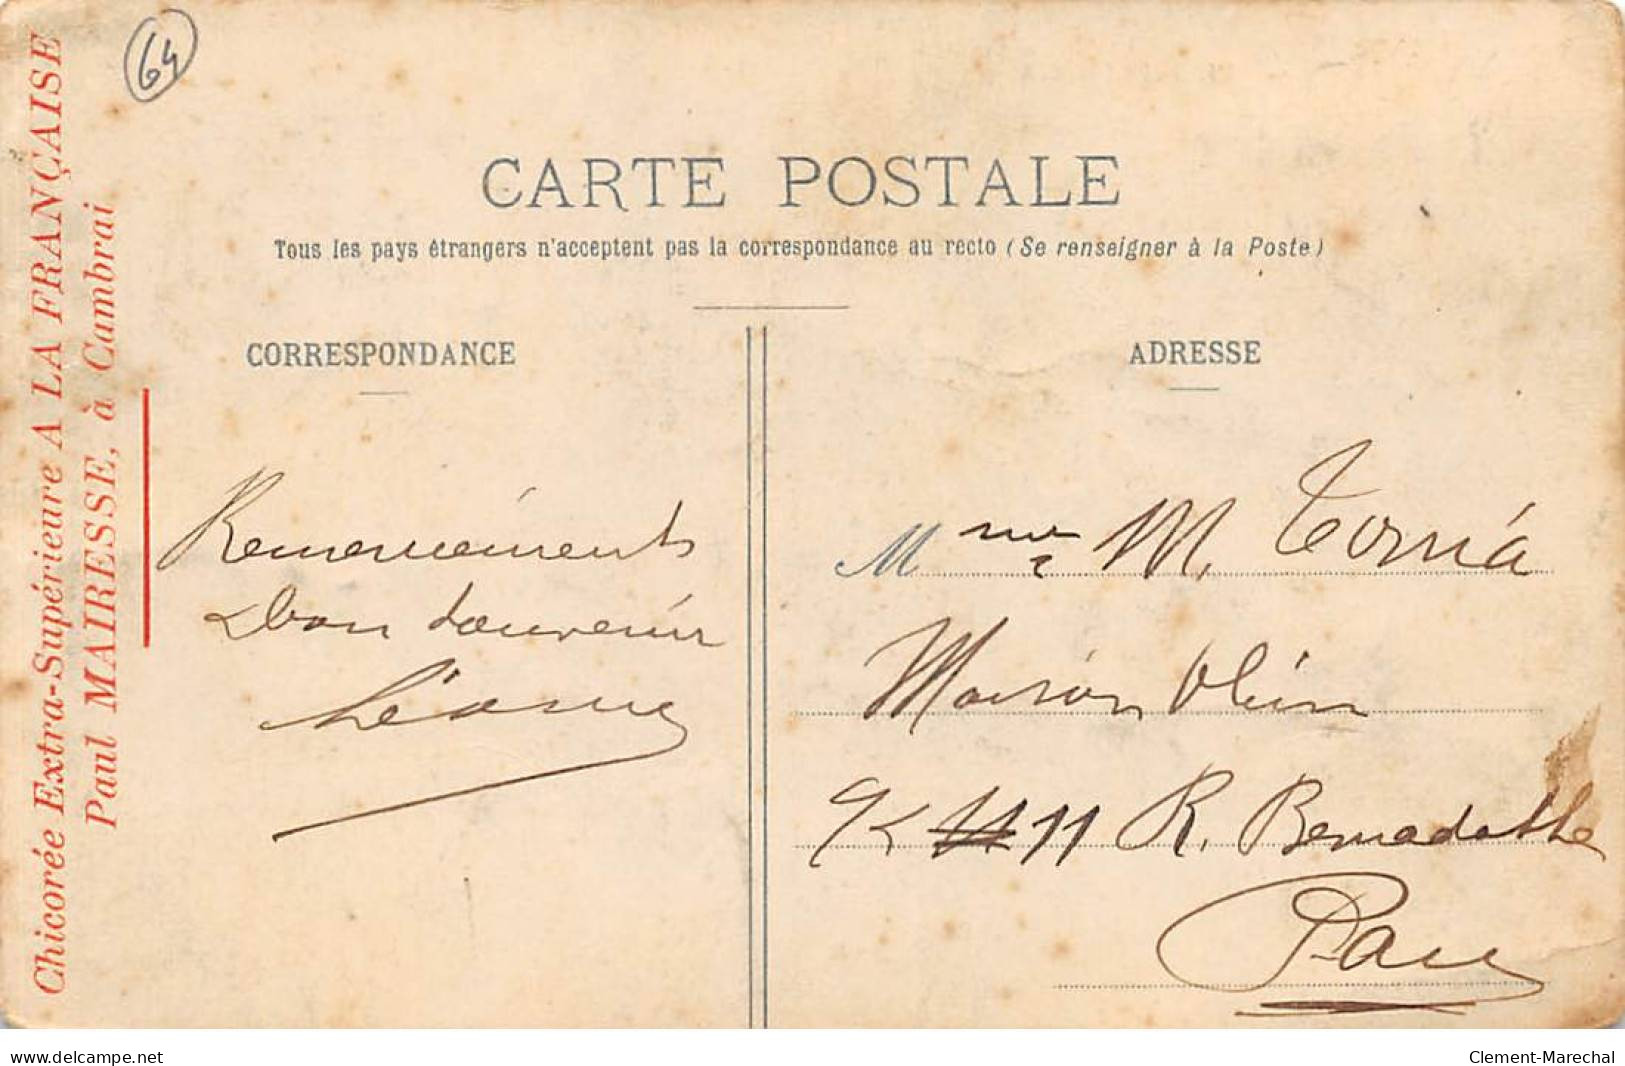 64
Chicorée Extra-Supérieure A LA FRANÇAISE
Paul MAIRESSE, à Cambrai
CARTE POSTALE
Tous les pays étrangers n'acceptent pas la correspondance au recto (Se renseigner à la Poste)
CORRESPONDANCE
Remerciements
bon souvenir
ADRESSE
Mme M.
Maison
11 R. Bernadotte
Pau
www.delcampe.net
Clement-Marechal